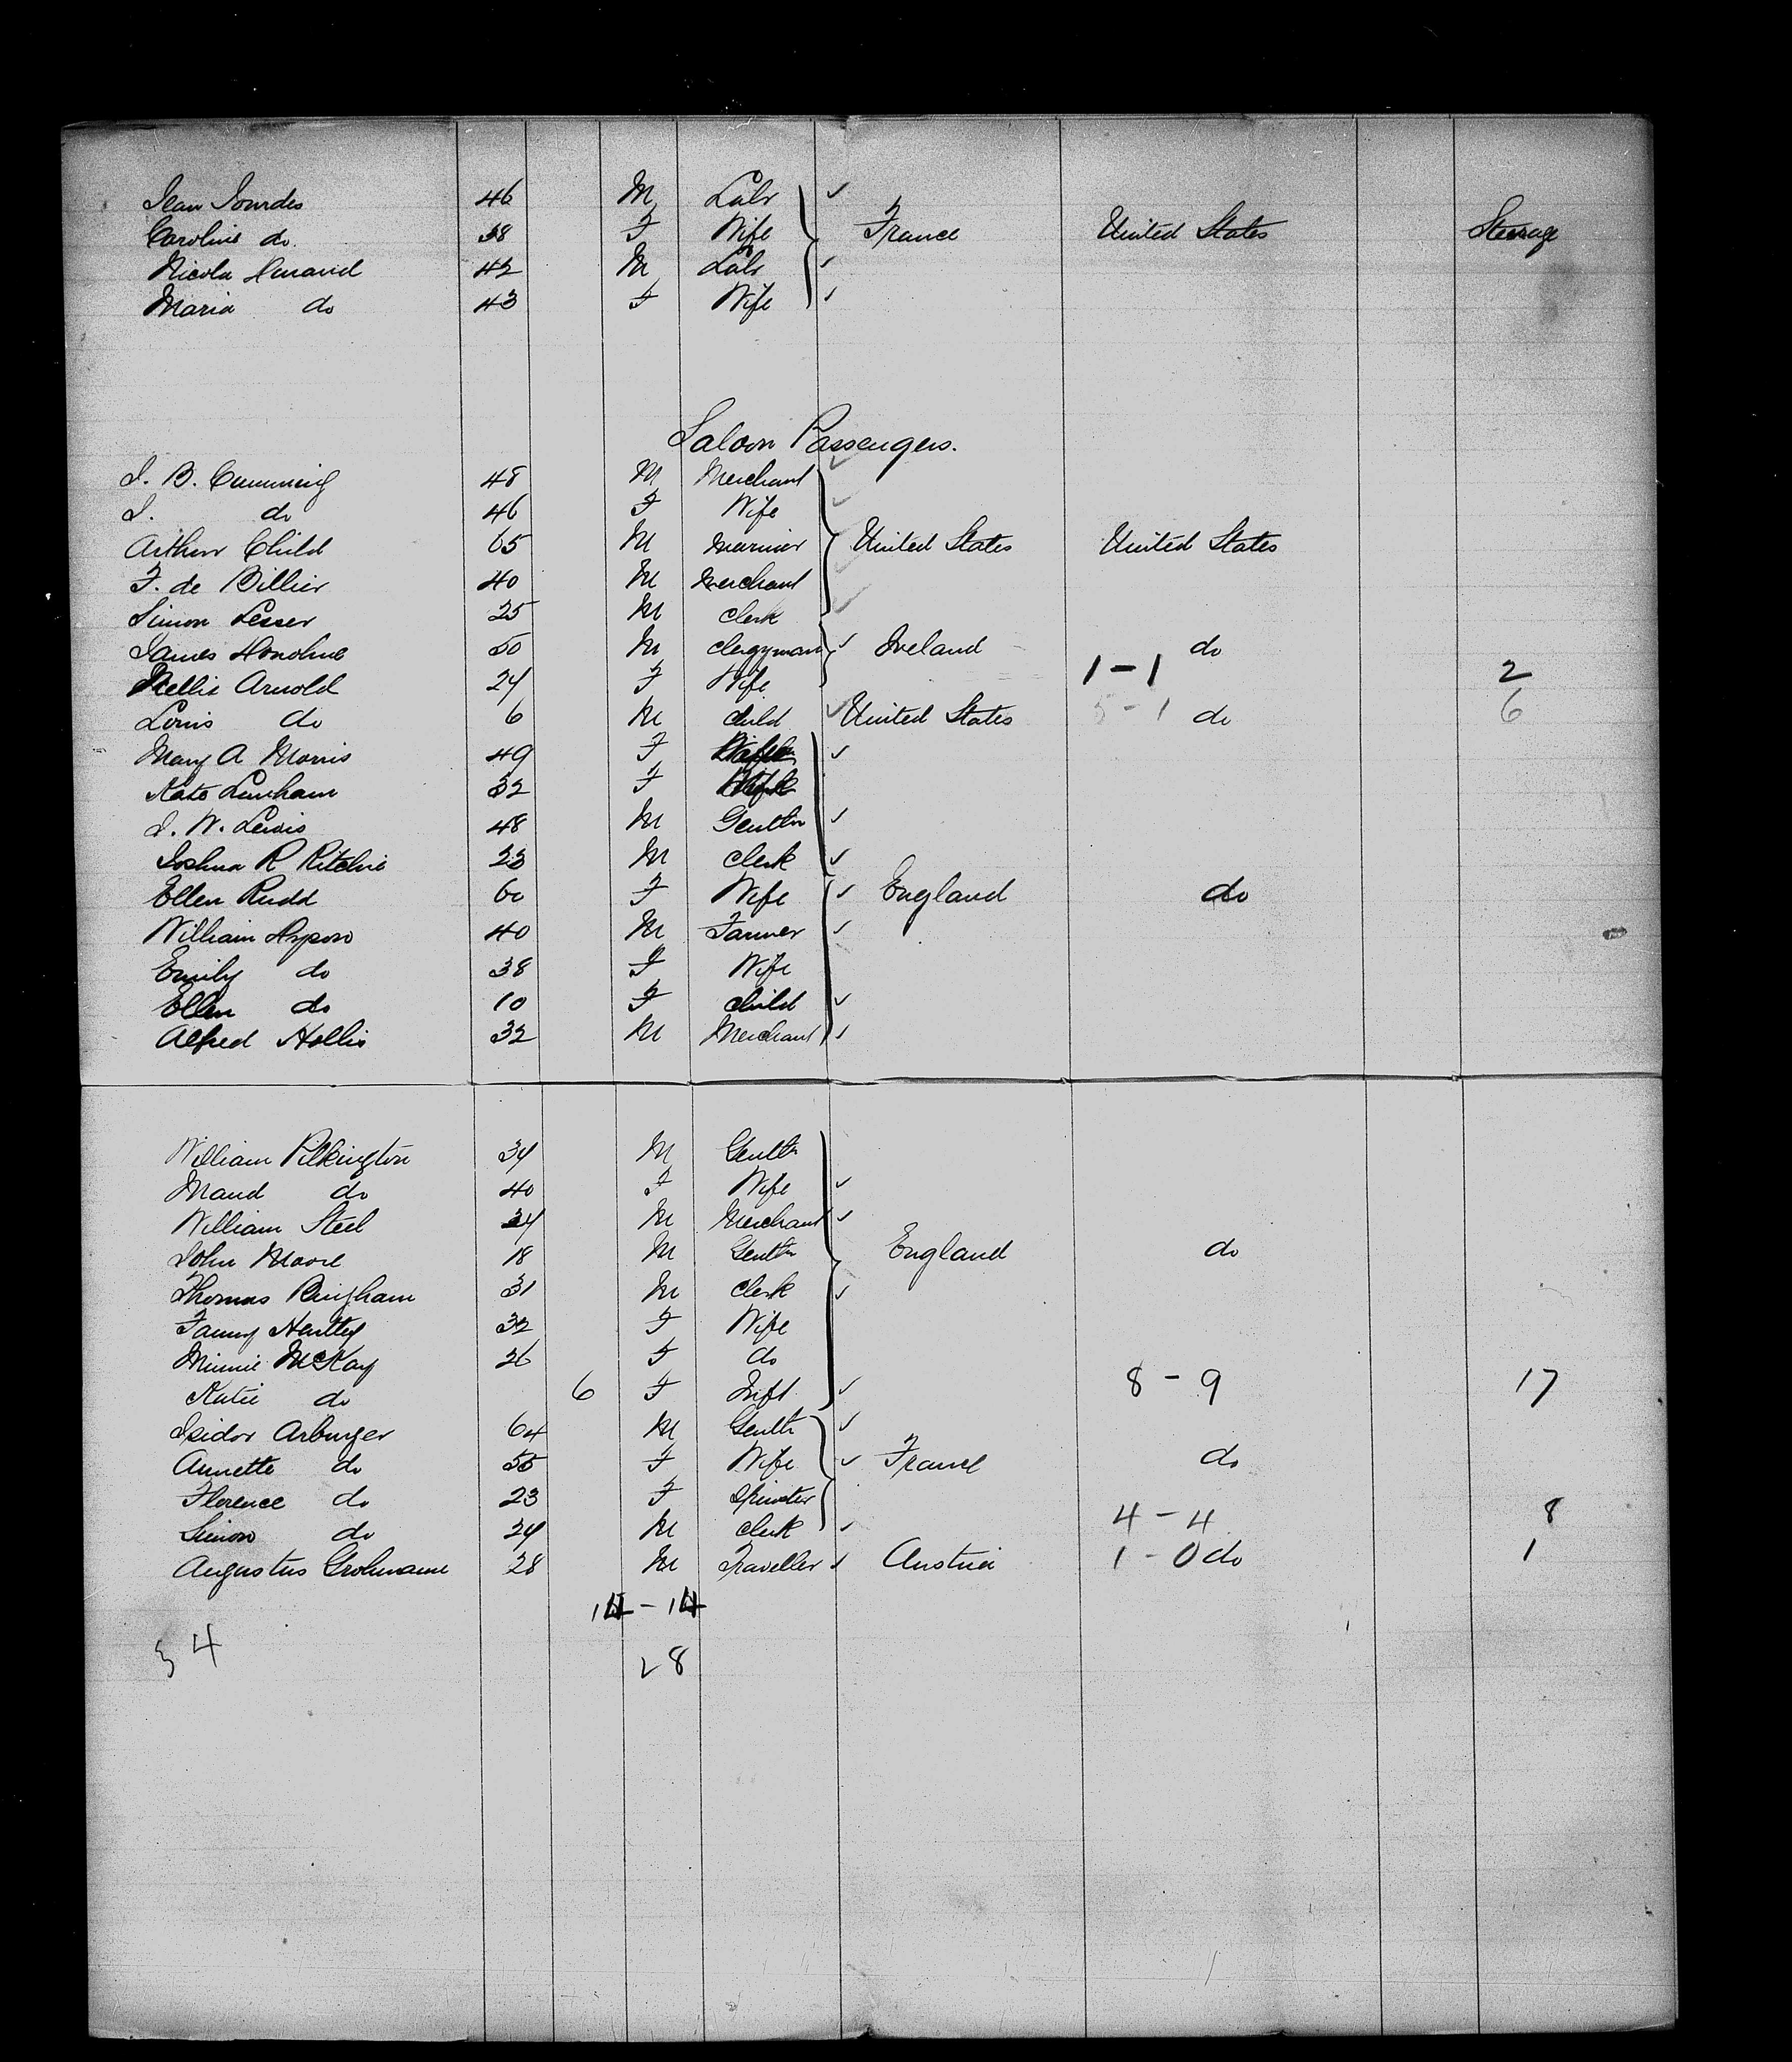 Jean Jourdes 46 M Labr
Caroline do. 38 F Wife France United States Steerage
Nicola 42 M Labr
Maria do 43 F Wife
Saloon Passengers.
J. B. Cumming 48 M Merchant
J. do 46 F Wife
Arthur Child 65 M Mariner United States United States
F. de Billier 40 M Merchant
Simon Lesser 25 M Clerk
James Honohue 50 M Clergyman Ireland do
Nellie Arnold 24 F Wife 1-1 2
Louis do 6 M Child United States 5-1 do 6
Mary A Morris 49 F
Kate Lenham 32 F
J. W. Lewis 48 M Gentln
Joshua R Ritchie 23 M Clerk
Ellen Rudd 60 F Wife England do
William 40 M Farmer
Emily do 38 F Wife
Ellen do 10 F Child
Alfred Hollis 32 M Merchant
William Pilkington 34 M Gentln
Maud do 40 F Wife
William Steel 34 M Merchant
John Moore 18 M Gentln England do
Thomas Bingham 31 M Clerk
Fanny Hentley 32 F Wife
Minnie McKay 26 F do
Katie do 6 F Inft 8-9 17
Isidor Arburger 64 M Gentln
Annette do 55 F Wife France do
Florence do 23 F Spinster
Simon do 24 M Clerk 4-4 8
Augustus Grohmann 28 M Traveller Austria 1-0 do 1
14-14
34
28